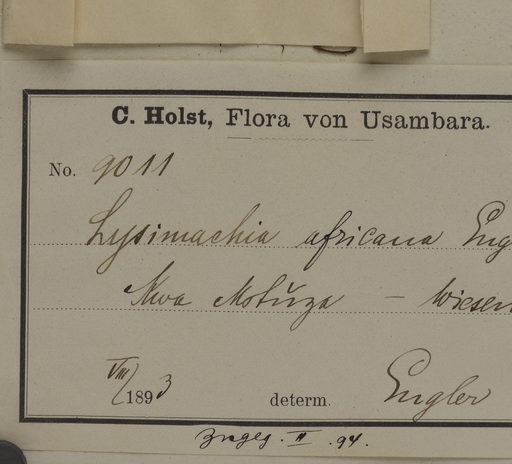 C. Holst, Flora von Usambara.
No. 9011
Lysimachia africana Eng
Kwa Motŭza – Wiesen
VIII/1893 determ. Engler
II. 94.